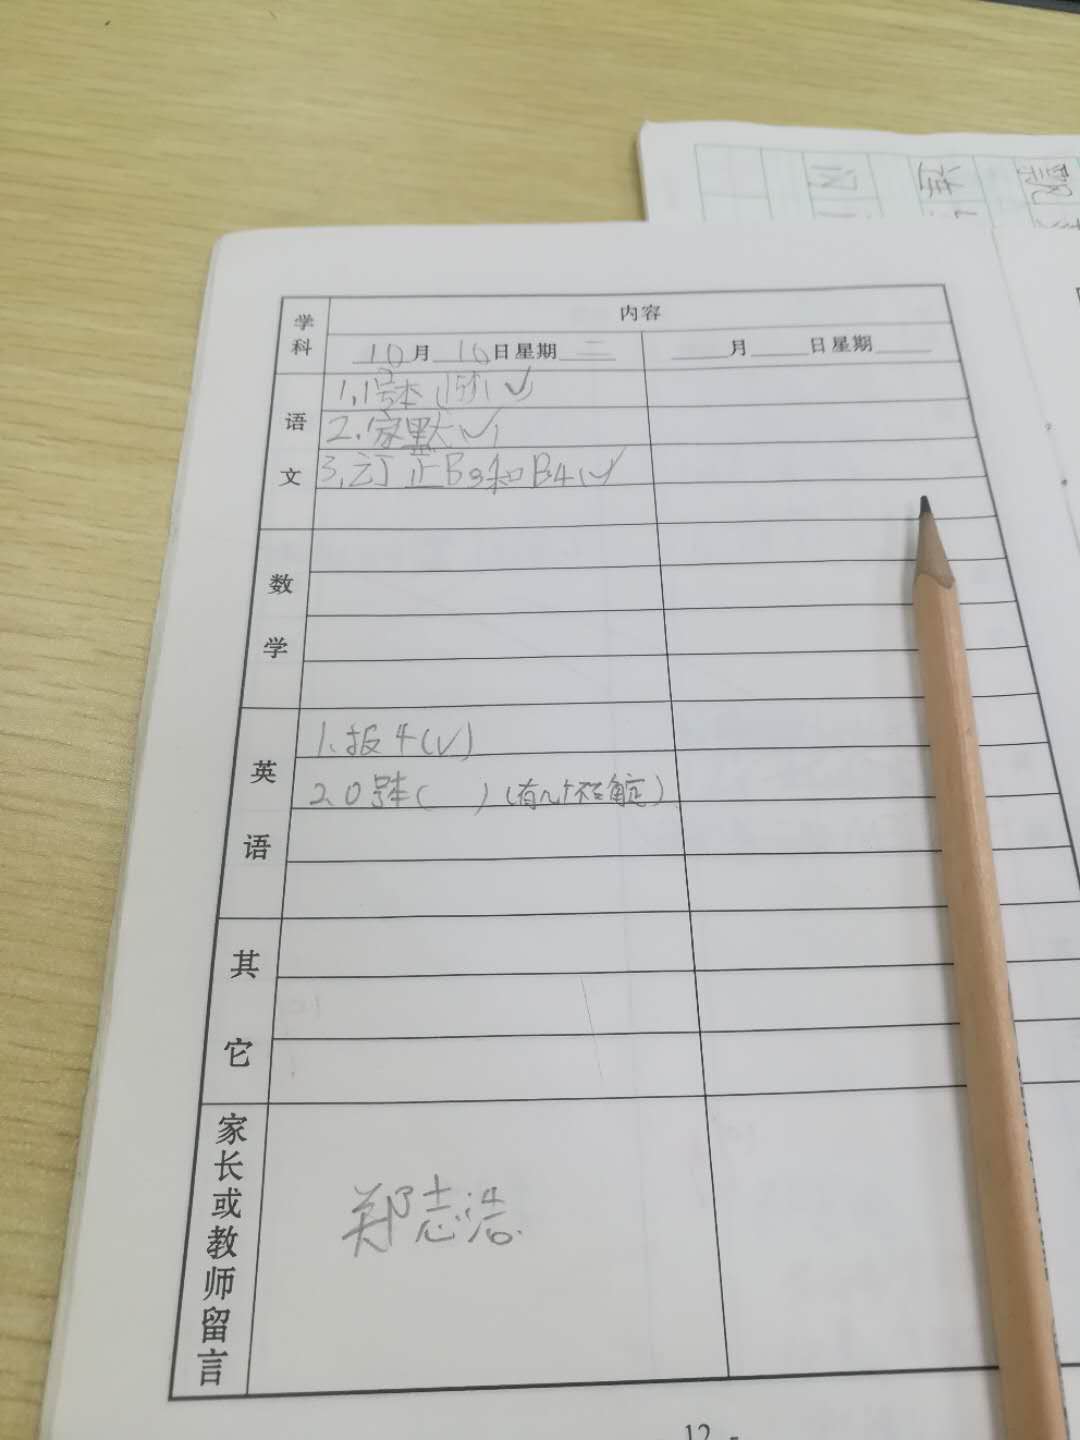 学科
内容
10月10日星期二
月 日星期
语文
1.1号本 ✓
2.家默✓
3.订正B3和B4✓
数学
英语
1.报4(✓)
2.0号本( )(有几个不确定)
其它
家长或教师留言
郑志浩
12 -